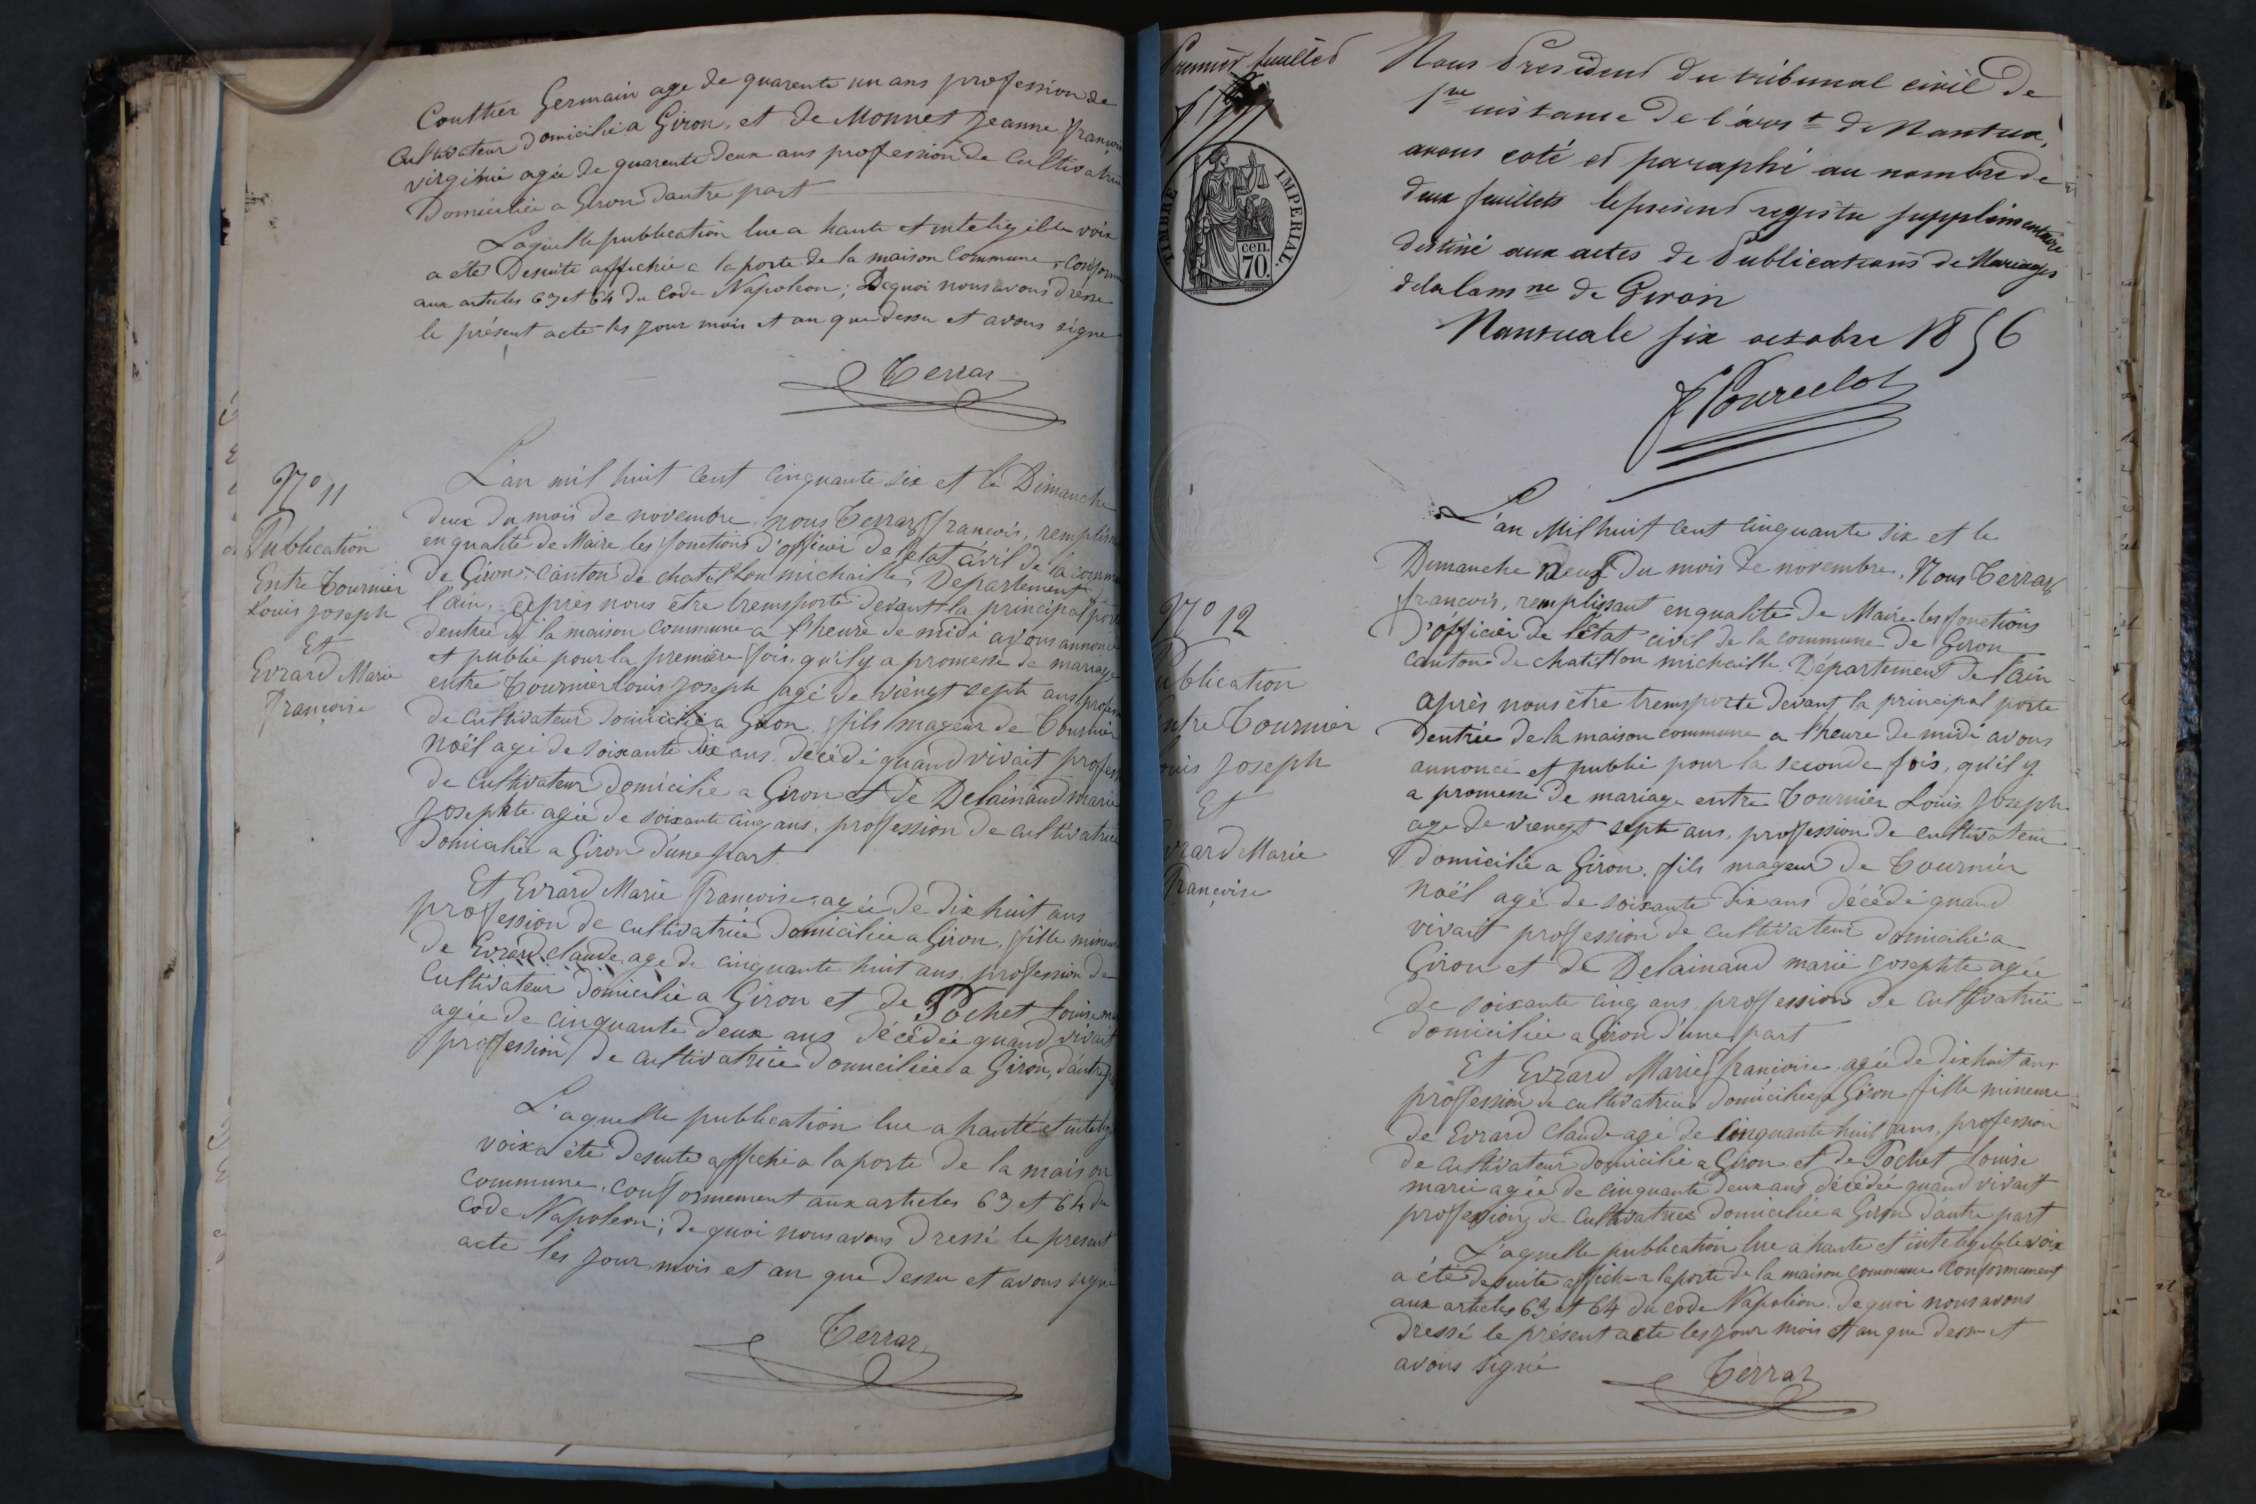 Couthier Germain age de quarente un ans profession de
Cultivateur domicilié a Giron, et de Monnet Jeanne françoise
virginie agée de quarente deux ans profession de Cultivatrice
Domiciliée a Giron dautre part
Laquelle publication lue a haute et inteligible voix
a eté Desuite affichée a la porte de la maison Commune, Conform
aux articles 63 et 64 du Code Napoleon; Dequoi nous avons dressé
le présent acte les jour mois et an que dessu et avons signé
Terraz
N° 11
Publication
Entre Tournier
Louis joseph
Et
Evrard Marie
françoise
L'an mil huit Cent Cinquante six et le Dimanche
deux du mois de novembre, nous Terraz françois, remplissa
en qualité de Maire les fonctions d'officier de l'état civil de la comm
de Giron, Canton de chatillon michaille, Departement
l'ain, Après nous être trensporté devant la principal porte
dentrée de la maison Commune a l'heure de midi avons annoncé
et publié pour la première fois, qu'il y a promesse de mariage
entre Tournier Louis Joseph agé de viengt sept ans profess
de Cultivateur domicilié a Giron, fils mageur de Tournier
Noël agé de soixante dix ans, décédé quand vivait profess
de Cultivateur domicilié a Giron et de Delainaud marie
Josephte agée de soixante cinq ans, profession de cultivatrice
Domiciliée a Giron d'une part
Et Evrard Marie françoise, agée de dix huit ans
profession de cultivatrice Domiciliée a Giron, fille mineu
de Evrard claude age de cinquante huit ans, profession de
Cultivateur Domicilié a Giron et de Pochet Louise ma
agée de cinquante deux ans décédée quand vivait
profession de cultivatrice domiciliée a Giron, d'autre p
L'aquelle publication lue a haute et intelig
voix a été Desuite affiché a la porte de la maison
Commune, conformement aux articles 63 et 64 du
Code Napoleon; de quoi nous avons dressé le present
acte les jour, mois et an que dessu et avons signe
Terraz
Premier feuillet
TIMBRE IMPERIAL.
cen.
70.
Nous President du tribunal civil de
1re instance de l'arrt de Nantua,
avons coté et paraphé au nombre de
deux feuillets le présent registre supplémentaire
destiné aux actes de Publications de Mariages
de la Comne de Giron
Nantua le six octobre 1856
Pourcelot
N° 12
ublication
ntre Tournier
ouis joseph
Et
vrard Marie
françoise
L'an Mil huit cent cinquante six et le
Dimanche neuf Du mois de novembre, Nous Terraz
françois, remplissant en qualité de Maire les fonctions
D'officier de l'Etat civil de la commune de Giron
Canton de chatillon michaille, Département De l'ain
après nous être trensporté devant la principal porte
Dentrée de la maison commune a l'heure de midi avons
annoncé et publié pour la seconde fois, qu'il y
a promesse de mariage entre Tournier Louis Joseph
age de viengt sept ans, profession de cultivateur
Domicilié a Giron, fils mageur de Tournier
Noël agé de soixante dix ans décédé quand
vivait profession de cultivateur domicilié a
Giron et de Delainaud marie josephte agée
de soixante cinq ans, profession de cultivatrice
domiciliée a Giron d'une part
Et Evrard Marie françoise, agée de dix huit ans
profession de cultivatrice domiciliée a Giron fille mineure
de Evrard Claude age de Cinquante huit ans, profession
de cultivateur domicilié a Giron et de Pochet Louise
marie agée de cinquante deux ans décédée quand vivait
profession de Cultivatrice domiciliée a Giron d'autre part
L'aquelle publication lue a haute et inteligible voix
a été desuite affiche a la porte de la maison commune Conformement
aux articles 63 et 64 du code Napoléon, de quoi nous avons
Dressé le présent acte les jour mois et an que dessu et
avons signé
Terraz